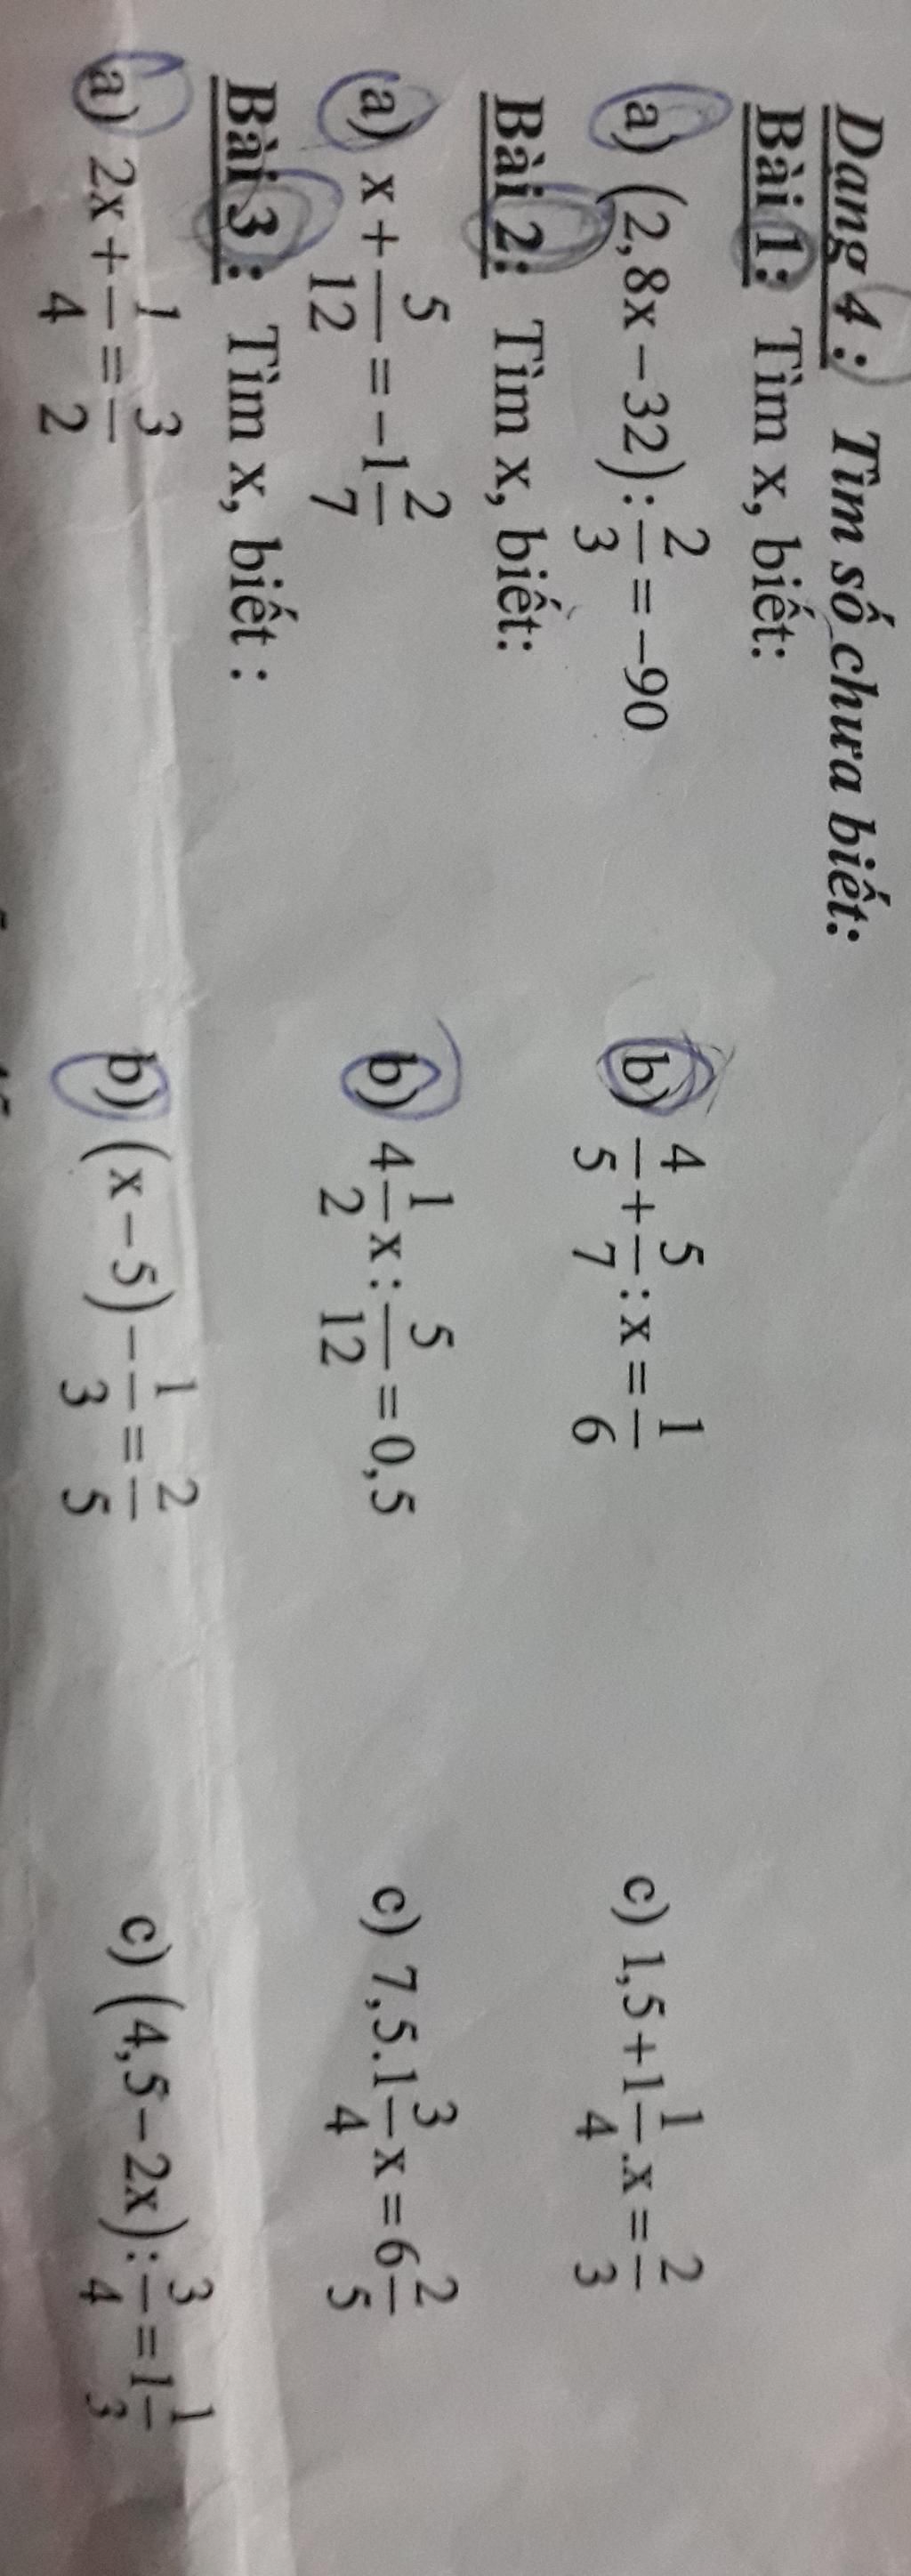 Dạng 4 : Tìm số chưa biết:
Bài 1: Tìm x, biết:
a) (2,8x – 32) : 2/3 = –90 b) 4/5 + 5/7 : x = 1/6 c) 1,5 + 1 1/4 .x = 2/3
Bài 2: Tìm x, biết:
a) x + 5/12 = –1 2/7 b) 4 1/2 x : 5/12 = 0,5 c) 7,5.1 3/4 x = 6 2/5
Bài 3 : Tìm x, biết :
a) 2x + 1/4 = 3/2 b) (x – 5) – 1/3 = 2/5 c) (4,5 – 2x) : 3/4 = 1 1/3